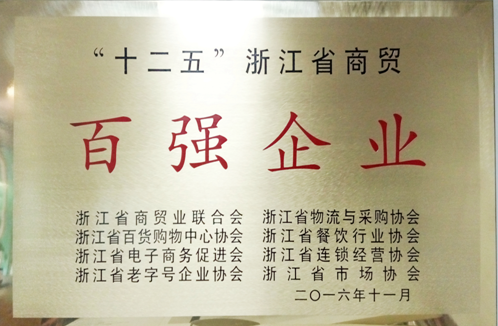 “十二五”浙江省商贸
百强企业
浙江省商贸业联合会 浙江省物流与采购协会
浙江省百货购物中心协会 浙江省餐饮行业协会
浙江省电子商务促进会 浙江省连锁经营协会
浙江省老字号企业协会 浙江省市场协会
二〇一六年十一月